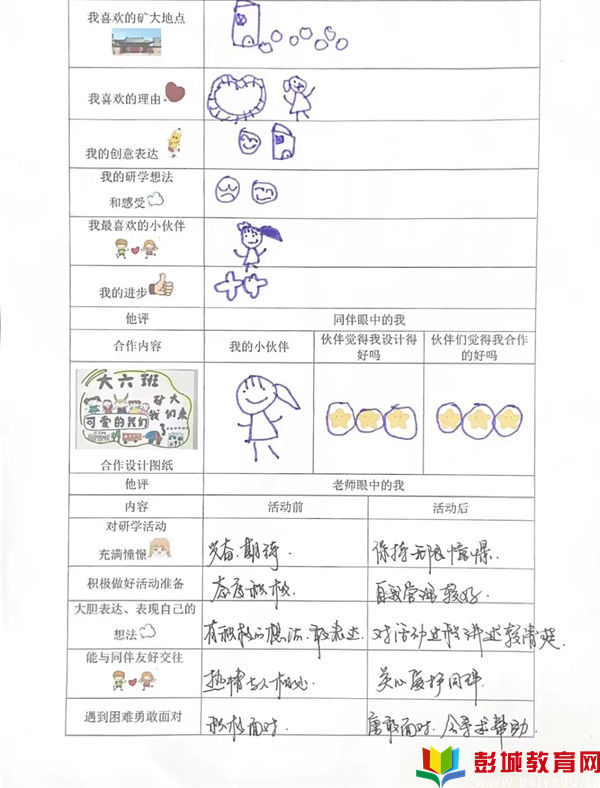 我喜欢的矿大地点
我喜欢的理由
我的创意表达
我的研学想法
和感受
我最喜欢的小伙伴
我的进步
他评 同伴眼中的我
合作内容 我的小伙伴 伙伴觉得我设计得好吗 伙伴们觉得我合作的好吗
大六班
矿大
可爱的我们
我们来
了......
合作设计图纸
他评 老师眼中的我
内容 活动前 活动后
对研学活动
充满憧憬 兴奋、期待。 保持无限憧憬。
积极做好活动准备 态度积极 自我管理较好。
大胆表达、表现自己的
想法 有积极的想法、敢表达. 对活动过程讲述较清楚.
能与同伴友好交往 热情与人相处 关心爱护同伴
遇到困难勇敢面对 积极面对. 勇敢面对、会寻求帮助.
彭城教育网